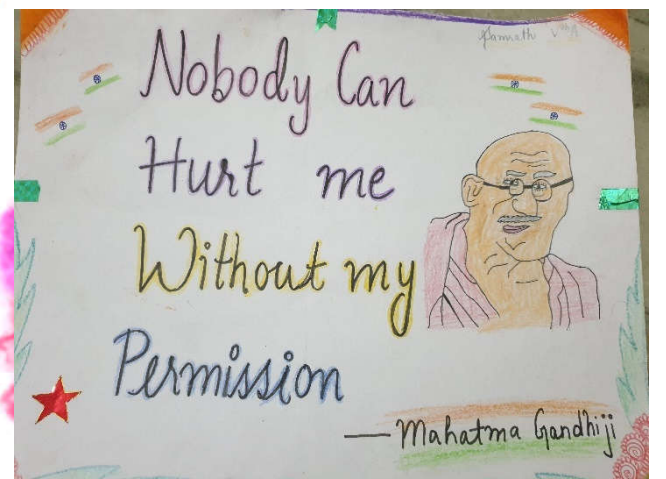 Nobody Can
Hurt me
Without my
Permission
— Mahatma Gandhiji